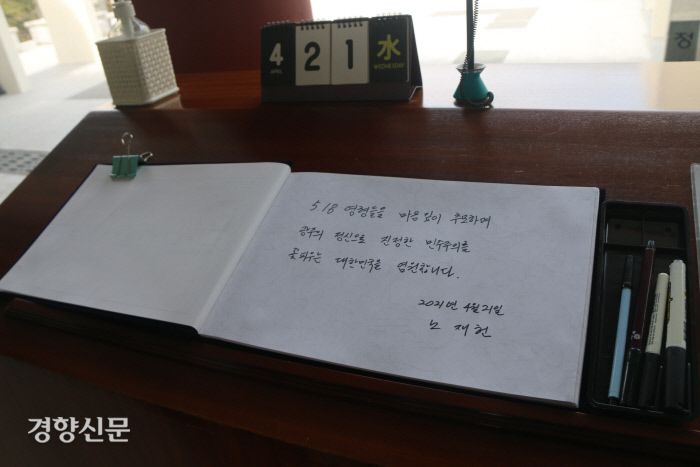 4
APRIL
2 1
水
WEDNESDAY
정
5.18 영령들을 마음 깊이 추모하며
광주의 정신으로 진정한 민주주의를
꽃피우는 대한민국을 염원합니다.
2021년 4월 21일
노재헌
경향신문